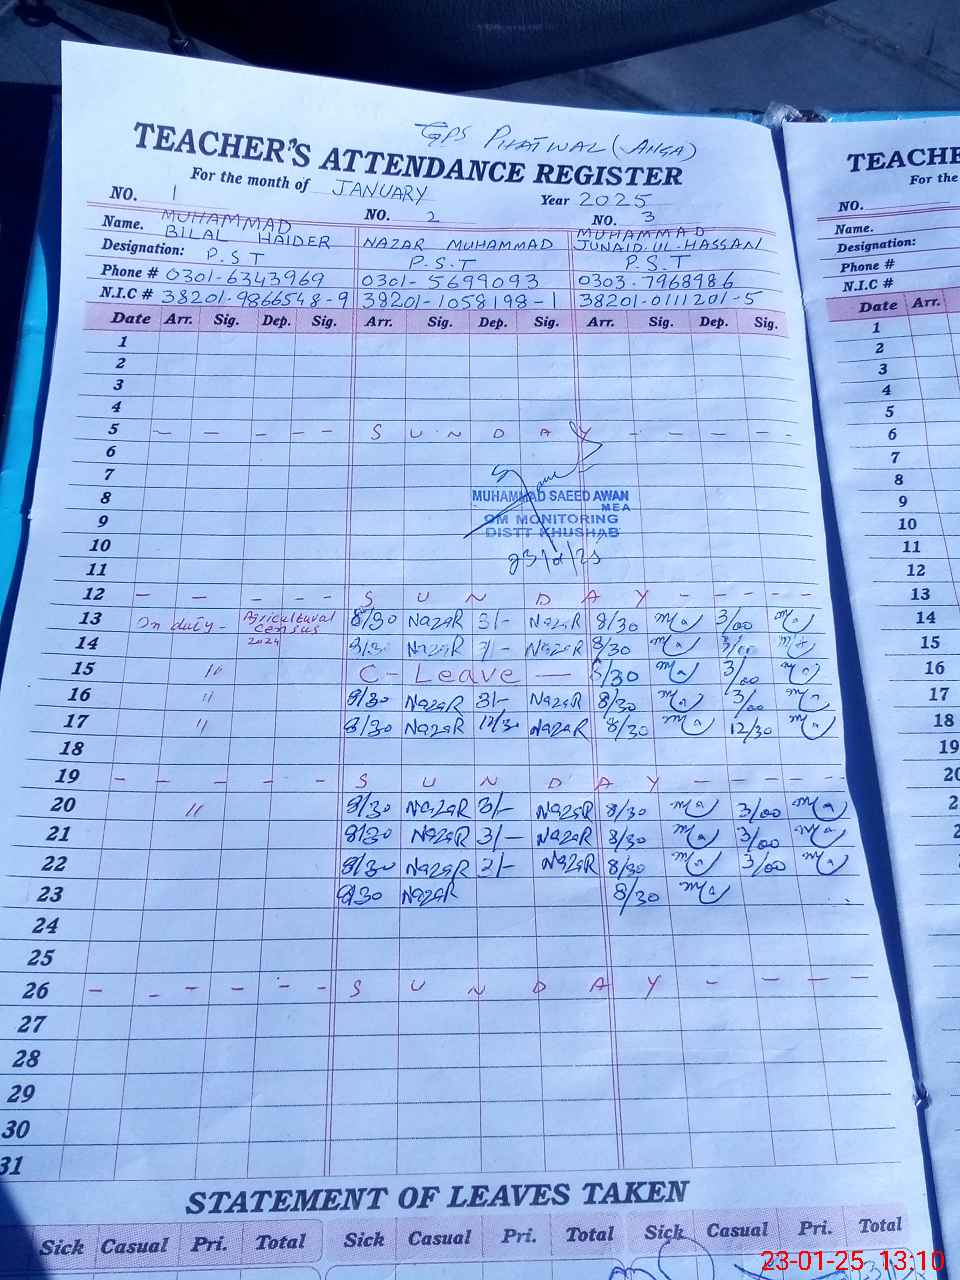 GPS PHATWAL (ANGA)
TEACHER'S ATTENDANCE REGISTER
For the month of JANUARY Year 2025
NO. 1 NO. 2 NO. 3
Name. MUHAMMAD BILAL HAIDER NAZAR MUHAMMAD MUHAMMAD JUNAID.UL.HASSAN
Designation: P.S.T P.S.T P.S.T
Phone # 0301-6343969 0301-5699093 0303-7968986
N.I.C # 38201-9866548-9 38201-1058198-1 38201-0111201-5
Date Arr. Sig. Dep. Sig. Arr. Sig. Dep. Sig. Arr. Sig. Dep. Sig.
1
2
3
4
5 - - - - - S U N D A Y - - - -
6
7
8 MUHAMMAD SAEED AWAN
MEA
9 OM MONITORING
DISTT KHUSHAB
10
11
12 - - - - - S U N D A Y - - - - -
13 On duty - Agricultural Census 2024 8/30 NazaR 3/- NazaR 8/30 3/00
14 8/30 NazaR 3/- NazaR 8/30 3/00
15 " C- Leave — 8/30 3/00
16 " 8/30 NazaR 3/- NazaR 8/30 3/00
17 " 8/30 NazaR 12/30 NazaR 8/30 12/30
18
19 - - - - - S U N D A Y - - - - -
20 " 8/30 NazaR 3/- NazaR 8/30 3/00
21 8/30 NazaR 3/- NazaR 8/30 3/00
22 8/30 NazaR 3/- NazaR 8/30 3/00
23 8/30 NazaR 8/30
24
25
26 - - - - - - S U N D A Y - - - -
27
28
29
30
31
STATEMENT OF LEAVES TAKEN
Sick Casual Pri. Total Sick Casual Pri. Total Sick Casual Pri. Total
TEACHE
For the
NO.
Name.
Designation:
Phone #
N.I.C #
Date Arr.
1
2
3
4
5
6
7
8
9
10
11
12
13
14
15
16
17
18
19
20
23-01-25 13:10